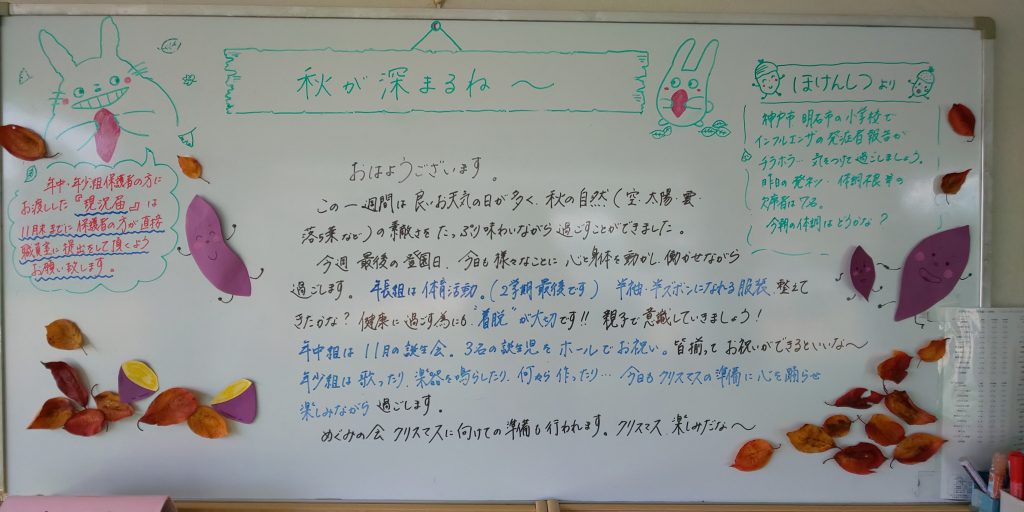 秋が深まるね～
ほけんしつより
神戸市 明石市の小学校で
インフルエンザの発症者報告が
チラホラ… 気をつけて過ごしましょう。
昨日の発ネツ・体調不良等の
欠席者は7名。
今朝の体調はどうかな？
年中・年少組保護者の方に
お渡しした『現況届』は
11月末までに保護者の方が直接
職員室に提出をして頂くよう
お願い致します。
おはようございます。
この一週間は良いお天気の日が多く、秋の自然（空・太陽・雲・
落ち葉など）の素敵さをたっぷり味わいながら過ごすことができました。
今週最後の登園日、今日も様々なことに心と身体を動かし、働かせながら
過ごします。年長組は体育活動。（2学期最後です）半袖・半ズボンになれる服装、整えて
きたかな？健康に過ごす為にも“着脱”が大切です!!親子で意識していきましょう！
年中組は11月の誕生会。3名の誕生児をホールでお祝い。皆揃ってお祝いができるといいな～
年少組は歌ったり、楽器を鳴らしたり、何やら作ったり…今日もクリスマスの準備に心を踊らせ
楽しみながら過ごします。
めぐみの会 クリスマスに向けての準備も行われます。クリスマス、楽しみだな～